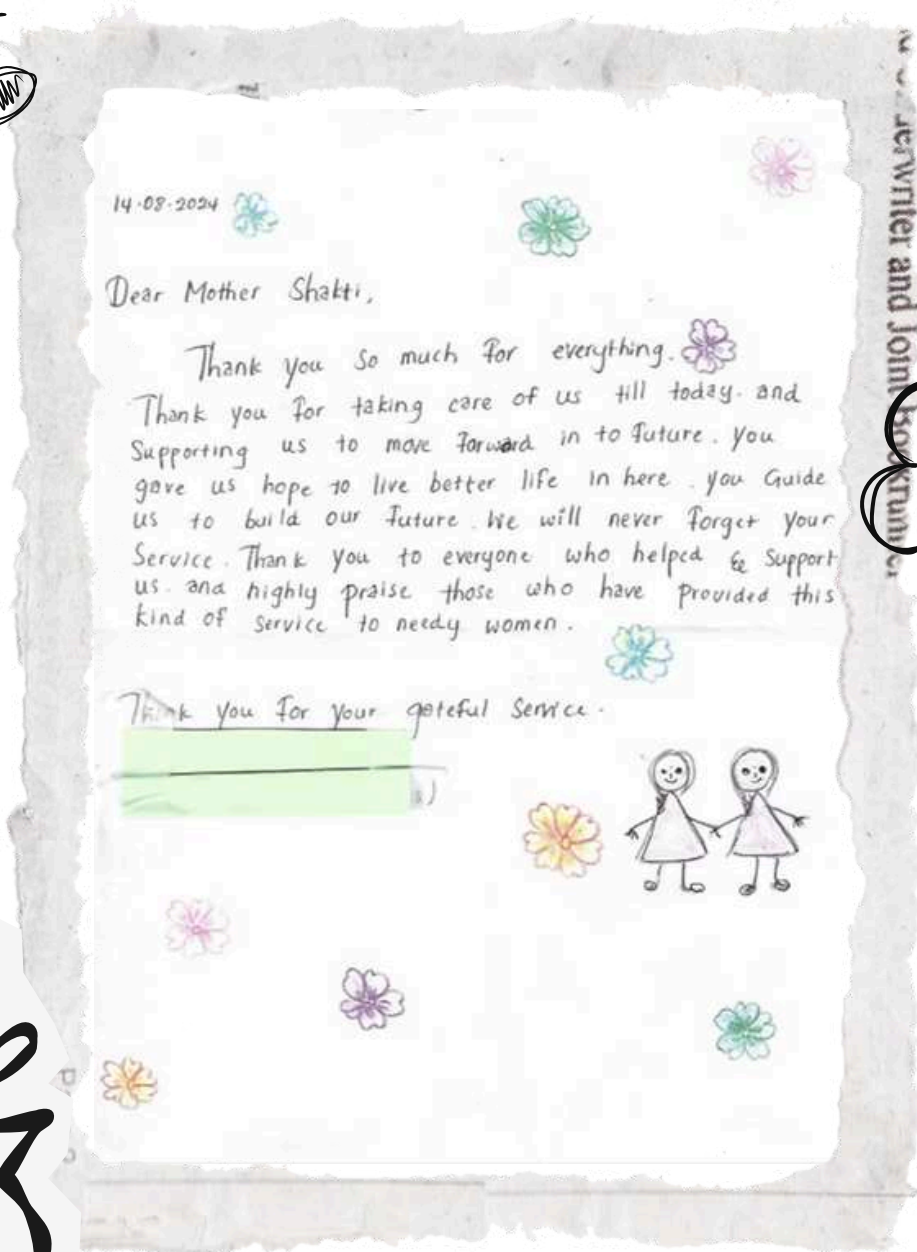 14-08-2024
Dear Mother Shakti,
Thank you so much for everything.
Thank you for taking care of us till today. and
Supporting us to move forward in to future. you
gave us hope to live better life in here. you Guide
us to build our future. We will never forget your
Service. Thank you to everyone who helped & Support
us. and highly praise those who have provided this
kind of service to needy women.
Thank you for your gateful Service.
erwriter and Joint Bookrunner